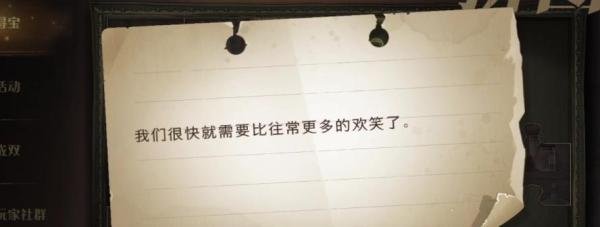 得宝
活动
成双
玩家社群
我们很快就需要比往常更多的欢笑了。